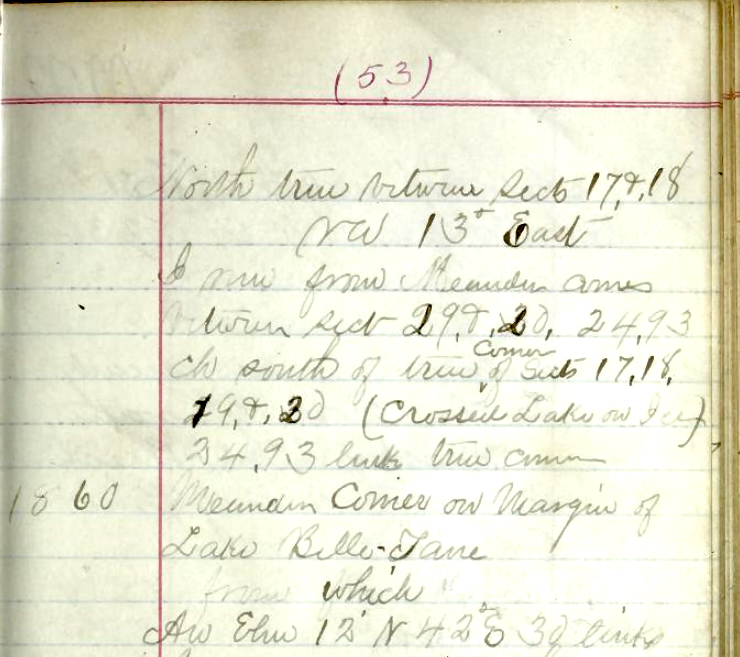 (53)
North true between Sects 17,&,18
va 13° East
I run from Meander corner
between sect 29,&,20, 24,93
ch south of true corner of Sects 17,18,
19,&,20 (Crossed Lake on Ice)
24,93 link true corner
18 60 Meander Corner on Margin of
Lake Belle-Tane
from which
An Elm 12 N 42° E 30 links